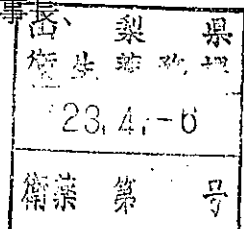 事長、
山梨県
衛生薬務課
23.4.-6
衛薬 第 号